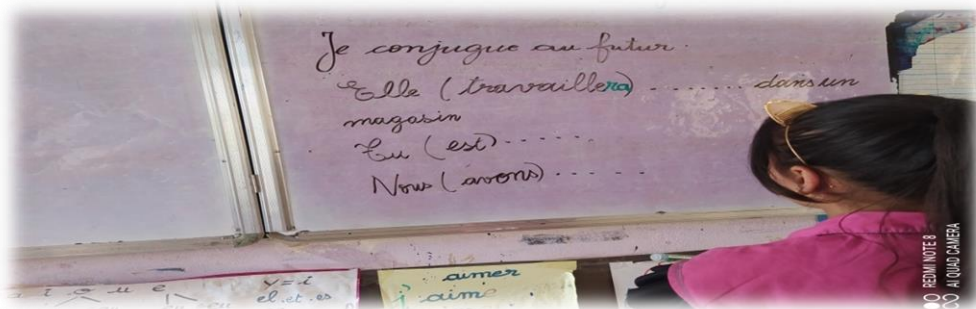 Je conjugue au futur.
Elle (travaillera) ........ dans un
magasin
Tu (est) ......
Nous (avons) ......
aimer
aim
y = i
el et es
REDMI NOTE 8
AI QUAD CAMERA